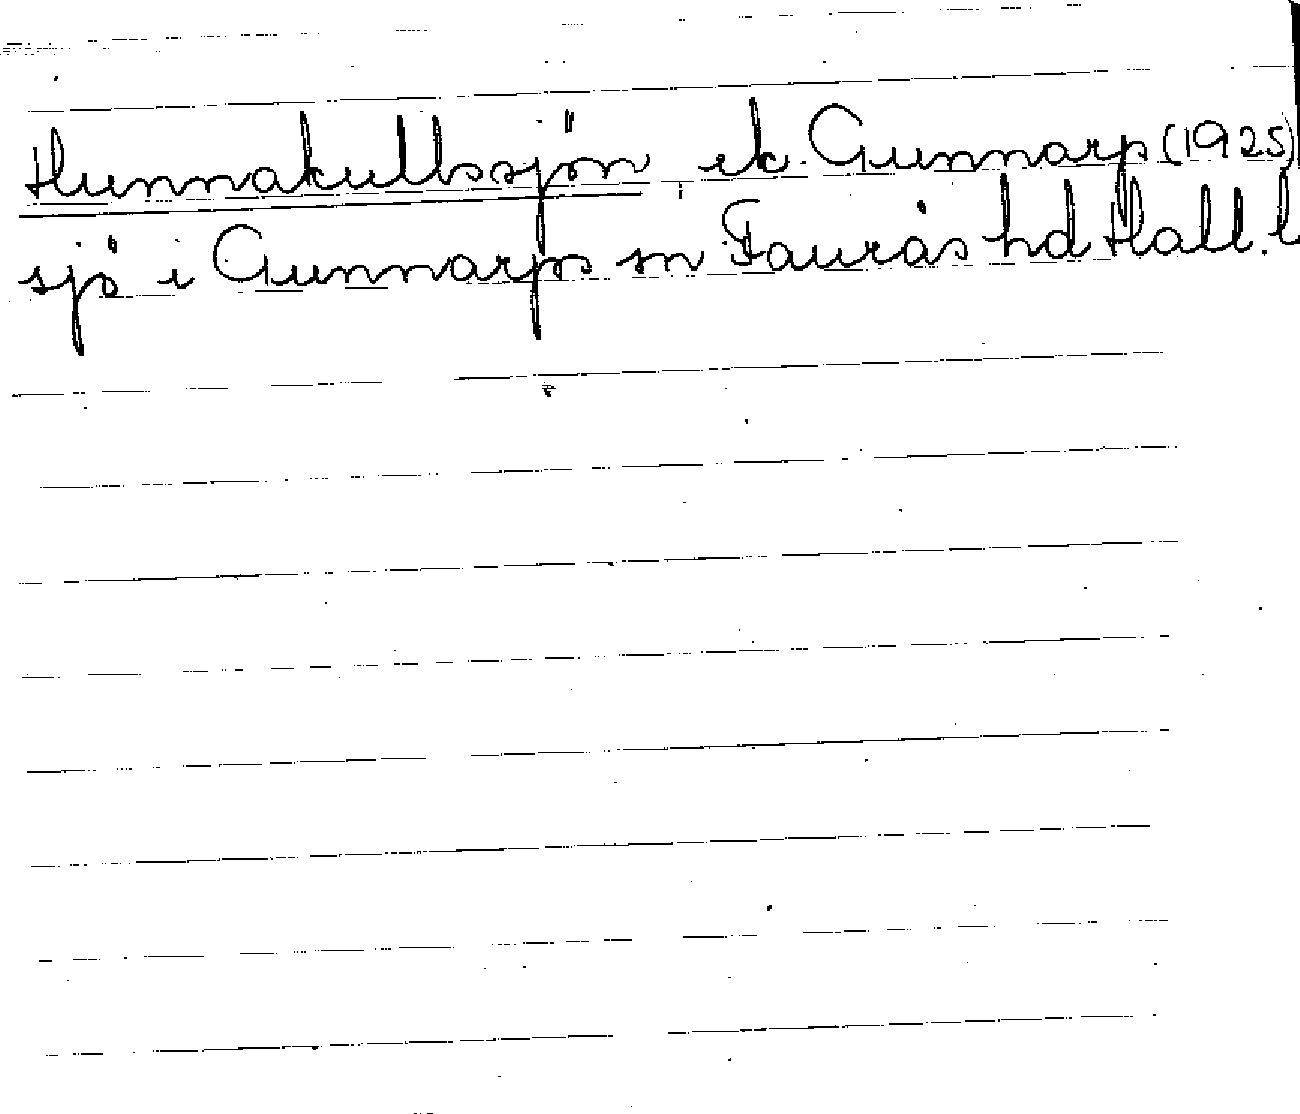 Hunnakullssjön ek. Gunnarp (1925)
sjö i Gunnarps sn Faurås hd Hall. l